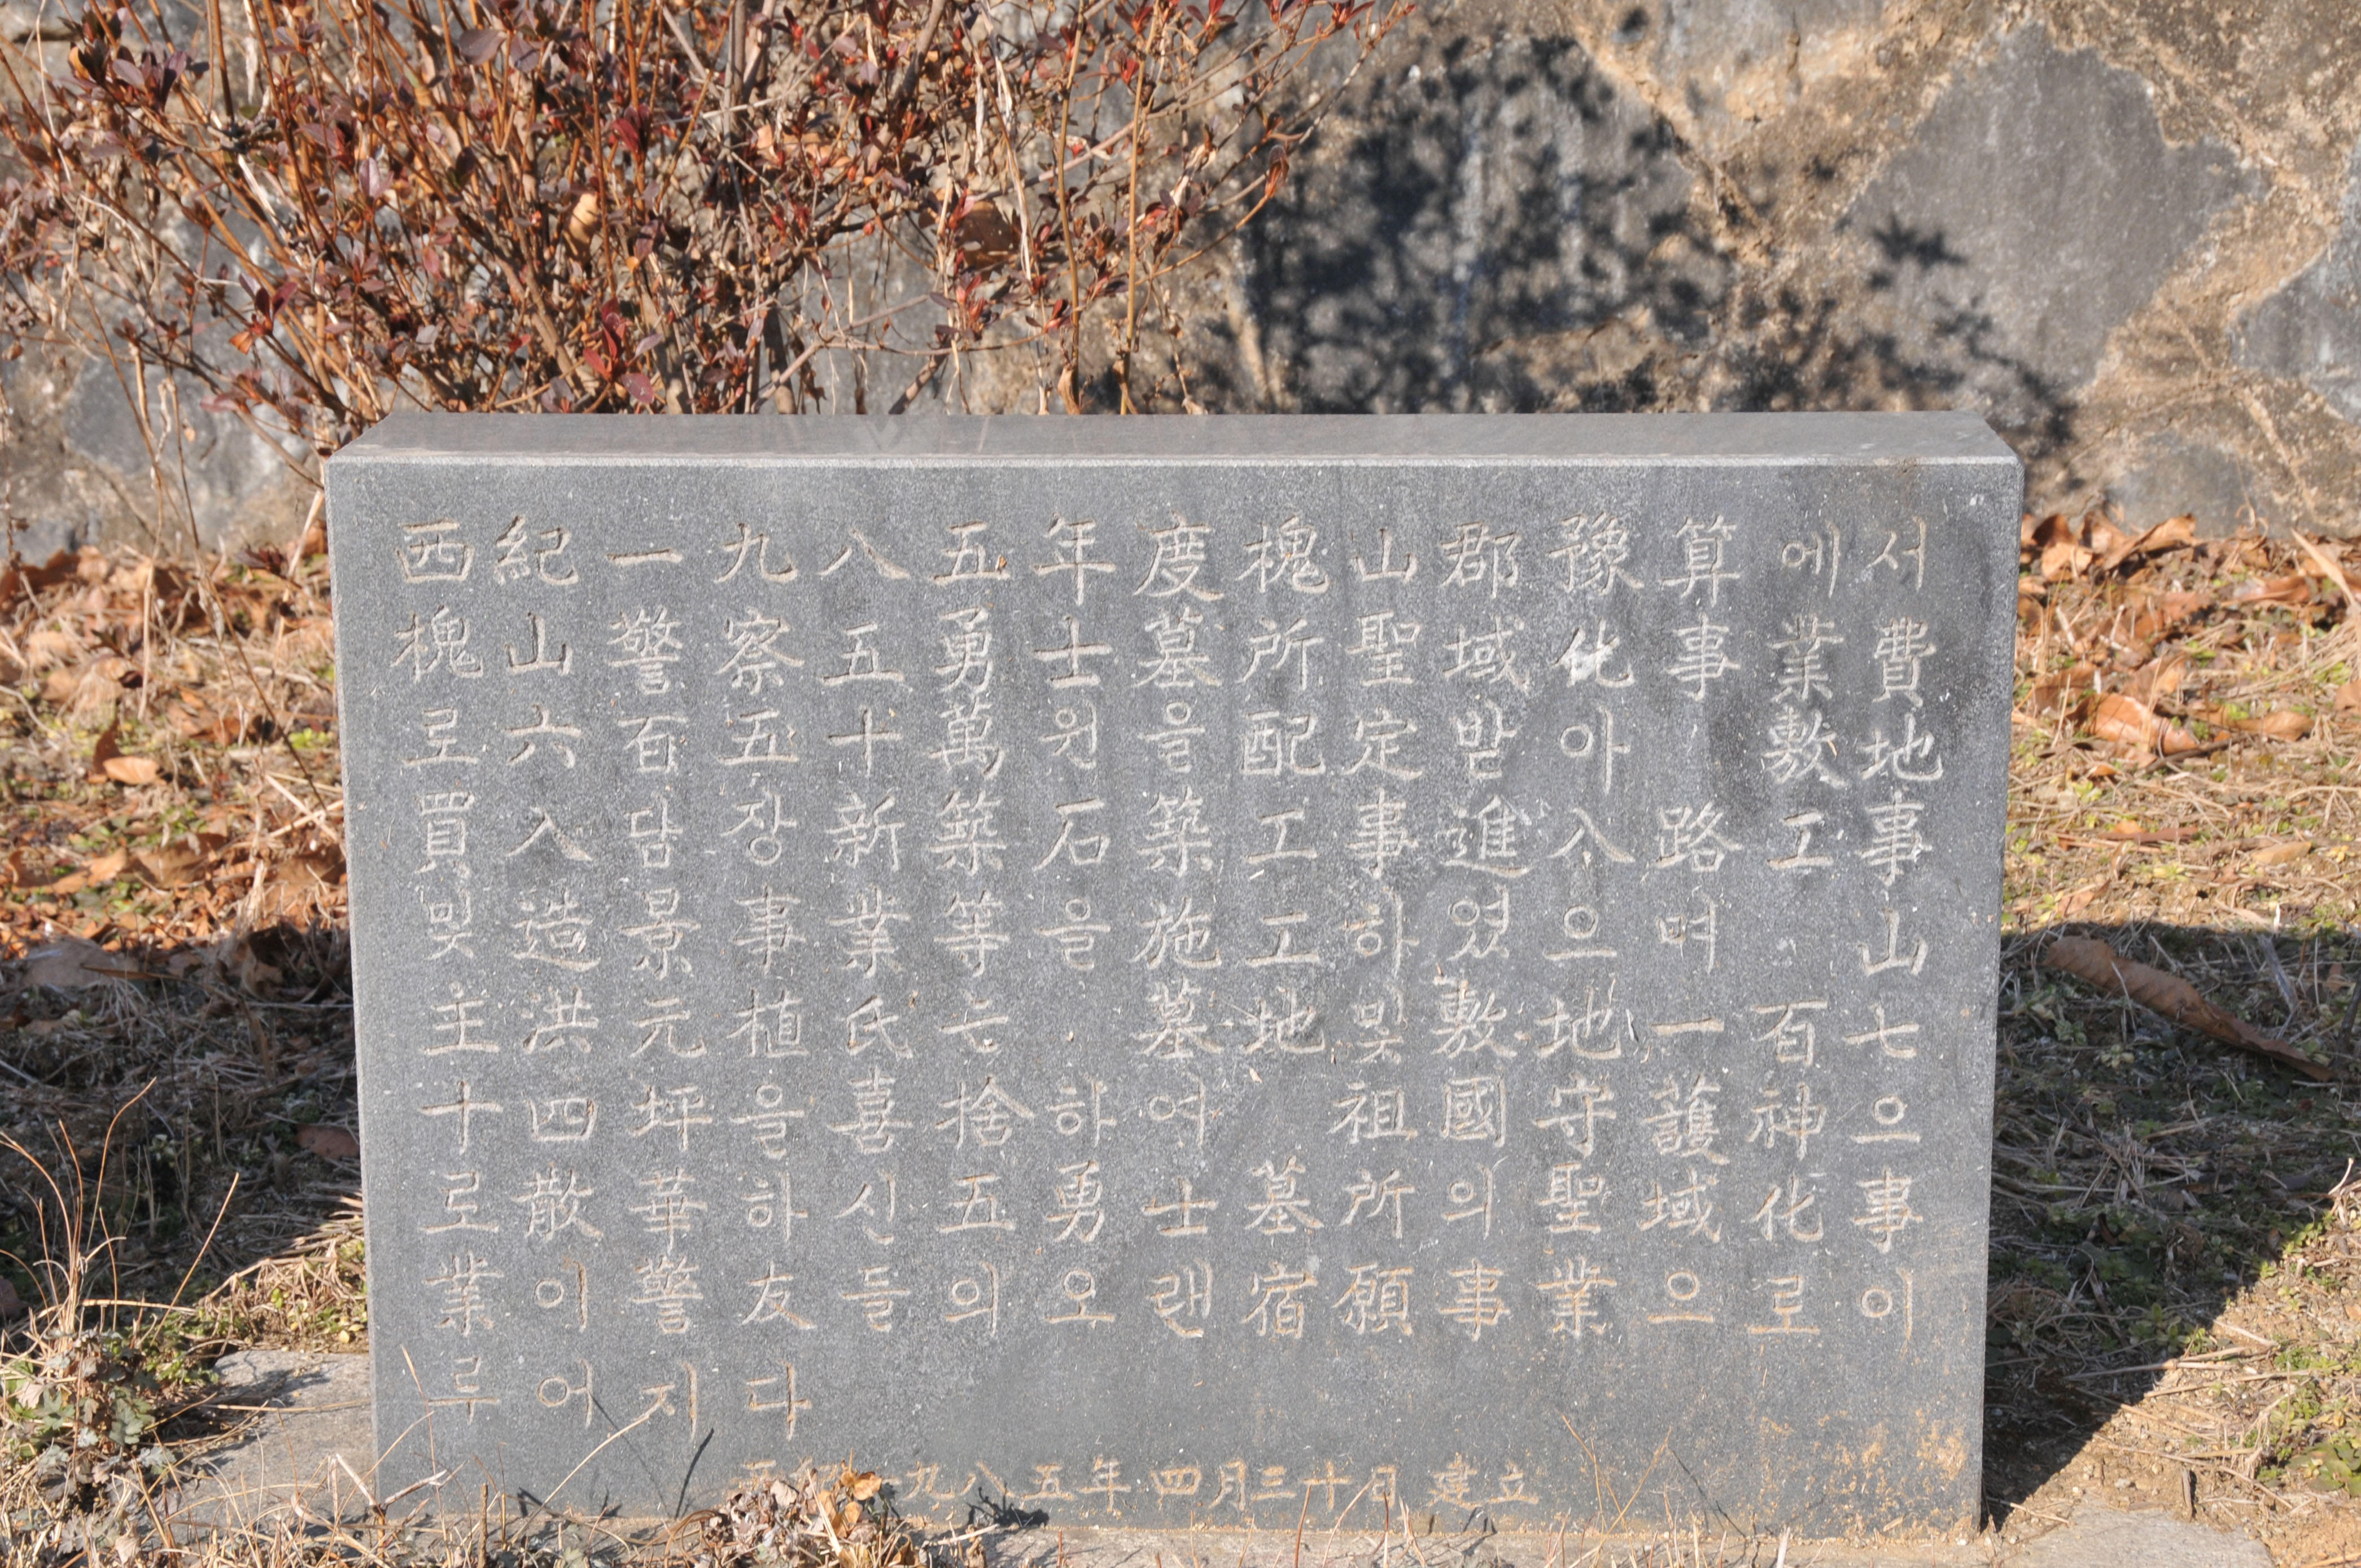 西紀一九八五年度槐山郡豫算에서
槐山警察五勇士墓所聖域化事業費
로六百五十萬원을配定받아 敷地
買入담장新築石築工事進入路工事
및造景事業等을施工하였으며 山
主洪元植氏는 墓地및敷地一百七
十四坪을喜捨하여 祖國守護神으
로散華하신五勇士墓所의聖域化事
業이警友들의오랜宿願事業으로이
루어지다
西紀一九八五年四月三十日 建立